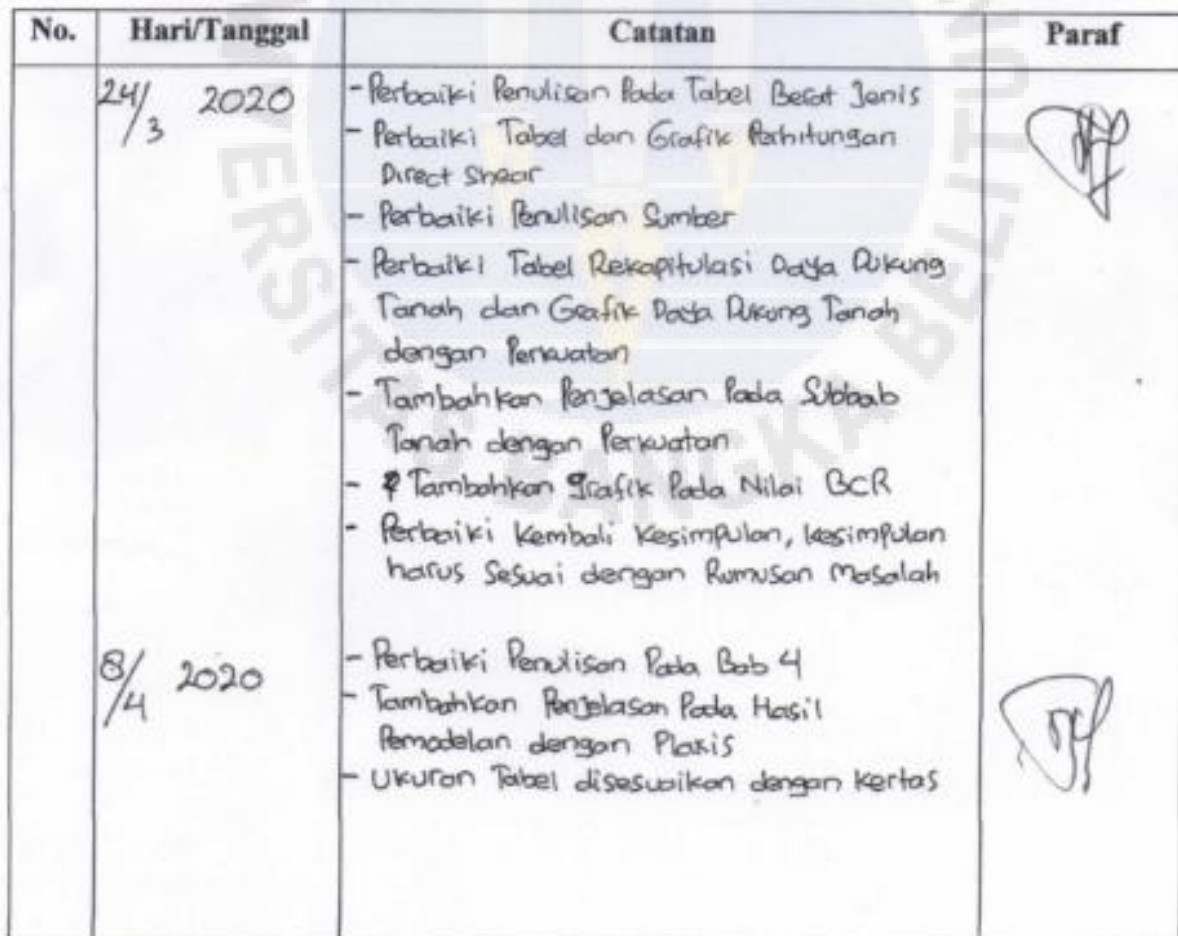 No. Hari/Tanggal Catatan Paraf
24/3 2020 - Perbaiki Penulisan Pada Tabel Berat Jenis
- Perbaiki Tabel dan Grafik Perhitungan
Direct Shear
- Perbaiki Penulisan Sumber
- Perbaiki Tabel Rekapitulasi Daya Dukung
Tanah dan Grafik Daya Dukung Tanah
dengan Perkuatan
- Tambahkan Penjelasan Pada Subbab
Tanah dengan Perkuatan
- Tambahkan grafik Pada Nilai BCR
- Perbaiki Kembali Kesimpulan, kesimpulan
harus Sesuai dengan Rumusan Masalah
8/4 2020 - Perbaiki Penulisan Pada Bab 4
- Tambahkan Penjelasan Pada Hasil
Pemodelan dengan Plaxis
- Ukuran Tabel disesuaikan dengan kertas
ERSITAS BANGKA BELITUN